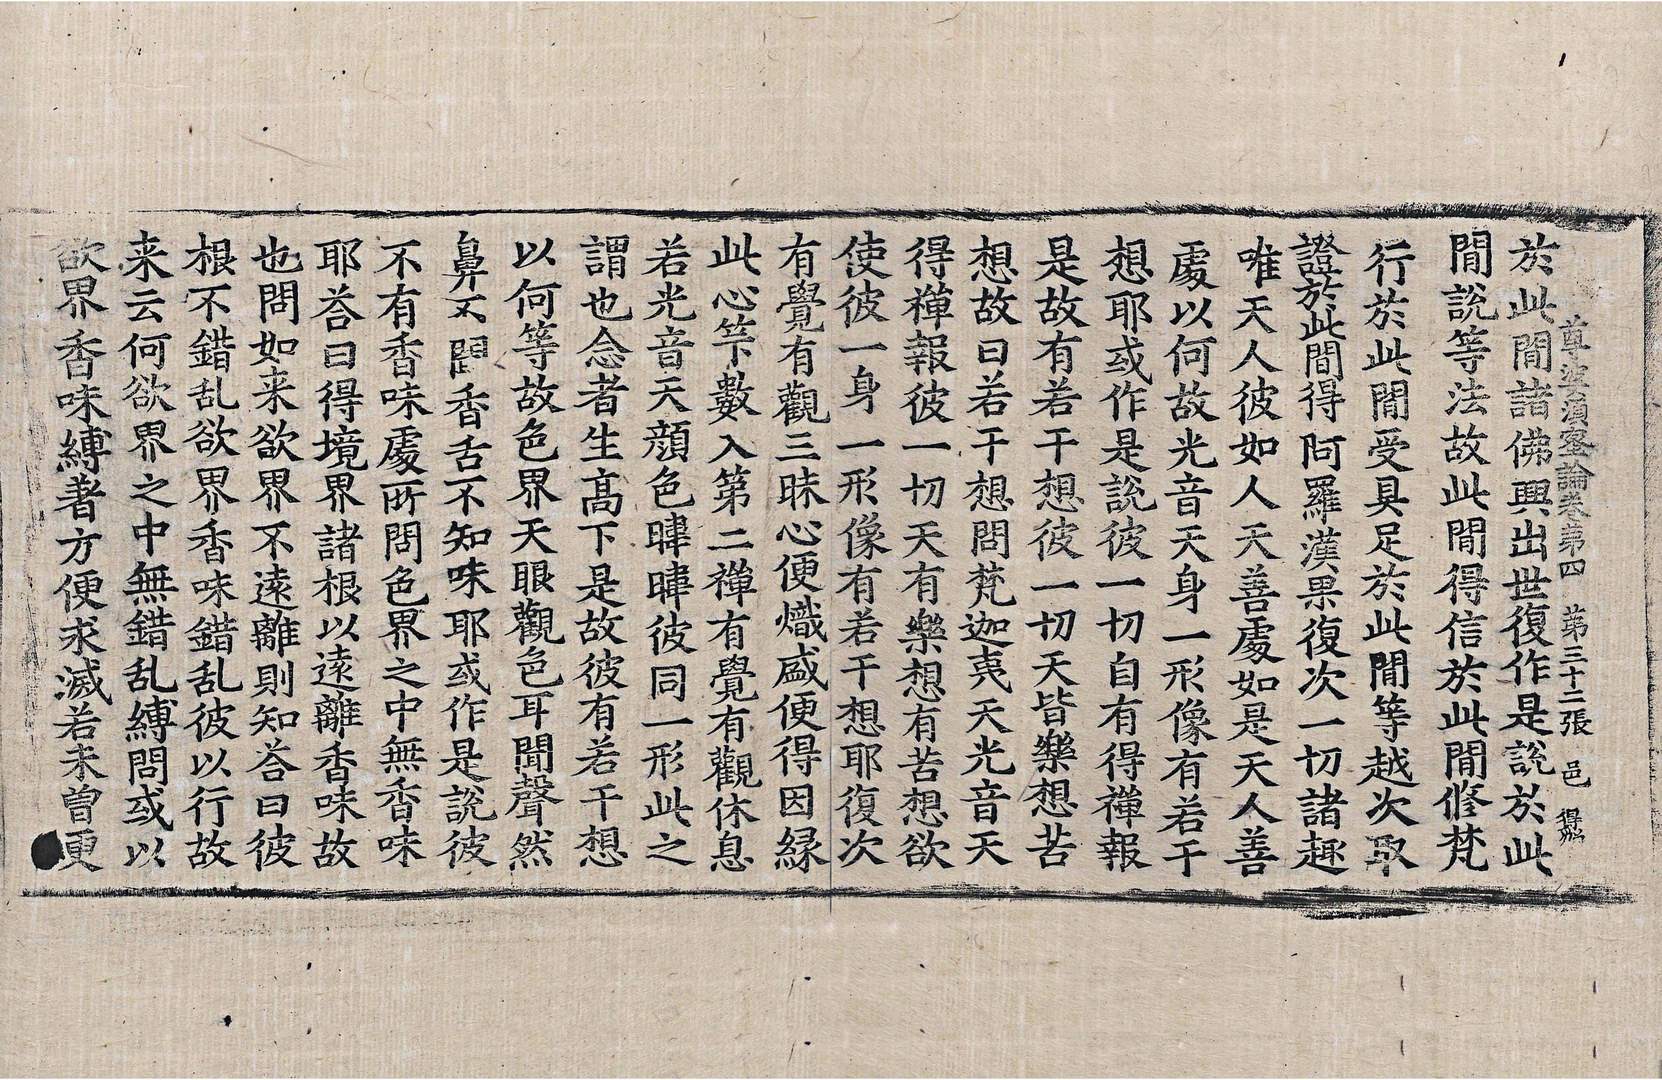 尊婆湏蜜論卷苐四　苐三十二張　邑
於此閒諸佛興出世復作是說於此
閒說等法故此閒得信於此閒修梵
行於此閒受具足於此閒等越次取
證於此閒得阿羅漢果復次一切諸趣
唯天人彼如人天善處如是天人善
處以何故光音天身一形像有若干
想耶或作是說彼一切自有得禪報
是故有若干想彼一切天皆樂想苦
想故曰若干想問梵迦夷天光音天
得禪報彼一切天有樂想有苦想欲
使彼一身一形像有若干想耶復次
有覺有觀三昧心便熾盛便得因緣
此心竿下數入第二禪有覺有觀休息
若光音天顔色暐暐彼同一形此之
謂也念者生髙下是故彼有若干想
以何等故色界天眼觀色耳聞聲然
鼻不聞香舌不知味耶或作是說彼
不有香味處所問色界之中無香味
耶荅曰得境界諸根以遠離香味故
也問如来欲界不遠離則知荅曰彼
根不錯乱欲界香味錯乱彼以行故
来云何欲界之中無錯乱縛問或以
欲界香味縛著方便求滅若未曾更